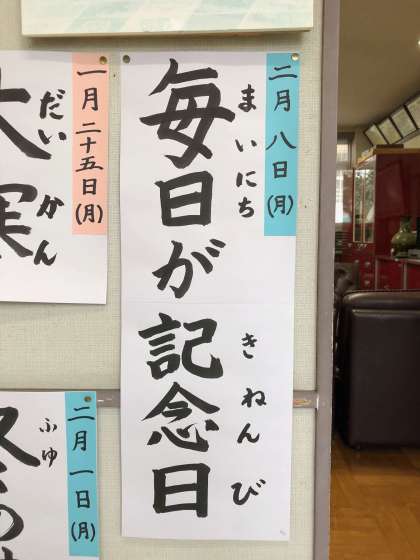 二月八日(月)
まいにち きねんび
毎日が記念日
一月二十五日(月)
だいかん
二月一日(月)
ふゆ